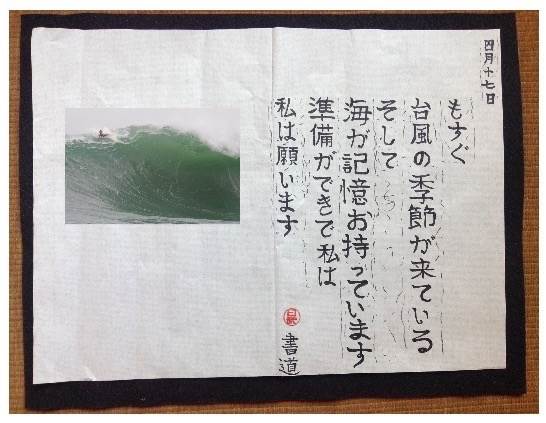 四月十七日
もすぐ
台風の季節が来ている
そして
海が記憶お持っています
準備ができで私は
私は願います
書道